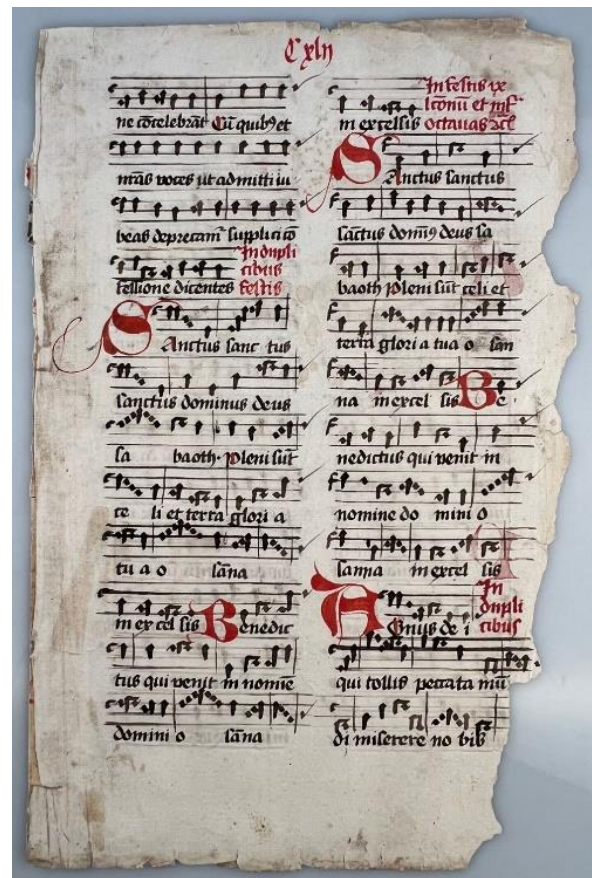 Cxlij
ne cōcelebrāt Cū quibꝰ et
nr̄as voces ut admitti iu
beas deprecamᷣ supplici cō
fessione dicentes
In dupli
cibus
festis
Sanctus sanc tus
sanctus dominus deus
sa baoth. Pleni sūt
ce li et terra glori a
tu a o sāna
in ex cel sis Benedic
tus qui venit in nomīe
domini o sāna
in excelsis
In festis
et
octauas
Sanctus sanctus
sāctus domīꝰ deus sa
baoth Pleni sūt celi et
terra glori a tua o san
na in excel sis Be
nedictus qui venit in
nomine do mini o
sanna in excel sis
In
dupli
cibus
Agnus de i
qui tollis peccata mū
di miserere no bis